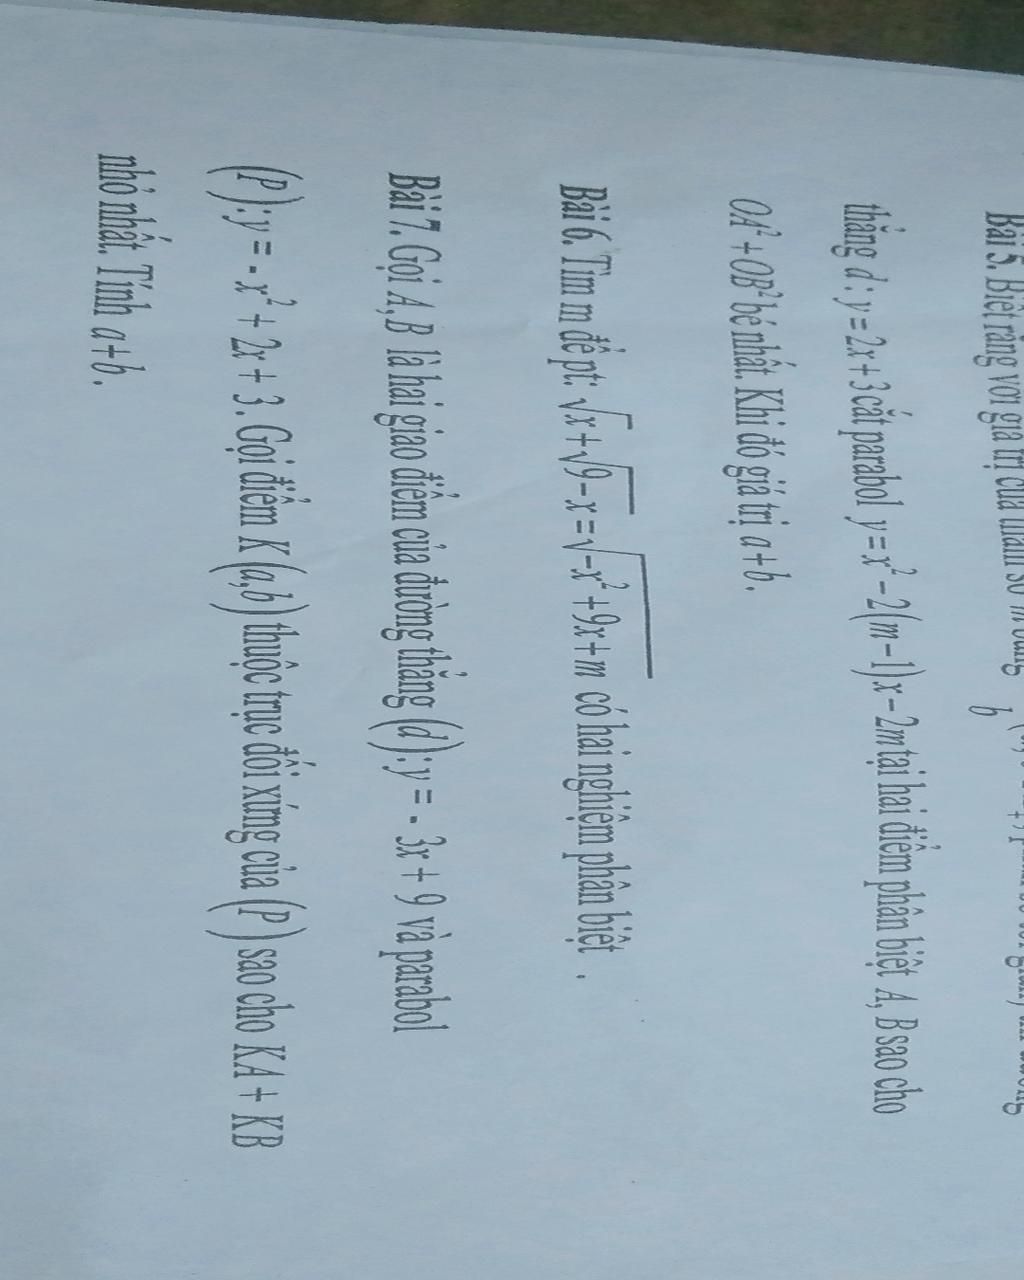 Bài 5. Biết rằng với giá trị của tham số m bằng
b
thẳng d : y = 2x + 3 cắt parabol y = x² − 2(m − 1)x − 2m tại hai điểm phân biệt A, B sao cho
OA² + OB² bé nhất. Khi đó giá trị a + b.
Bài 6. Tìm m để pt: √x + √9 − x = √−x² + 9x + m có hai nghiệm phân biệt .
Bài 7. Gọi A, B là hai giao điểm của đường thẳng (d): y = - 3x + 9 và parabol
(P): y = - x² + 2x + 3. Gọi điểm K (a,b) thuộc trục đối xứng của (P) sao cho KA + KB
nhỏ nhất. Tính a + b.